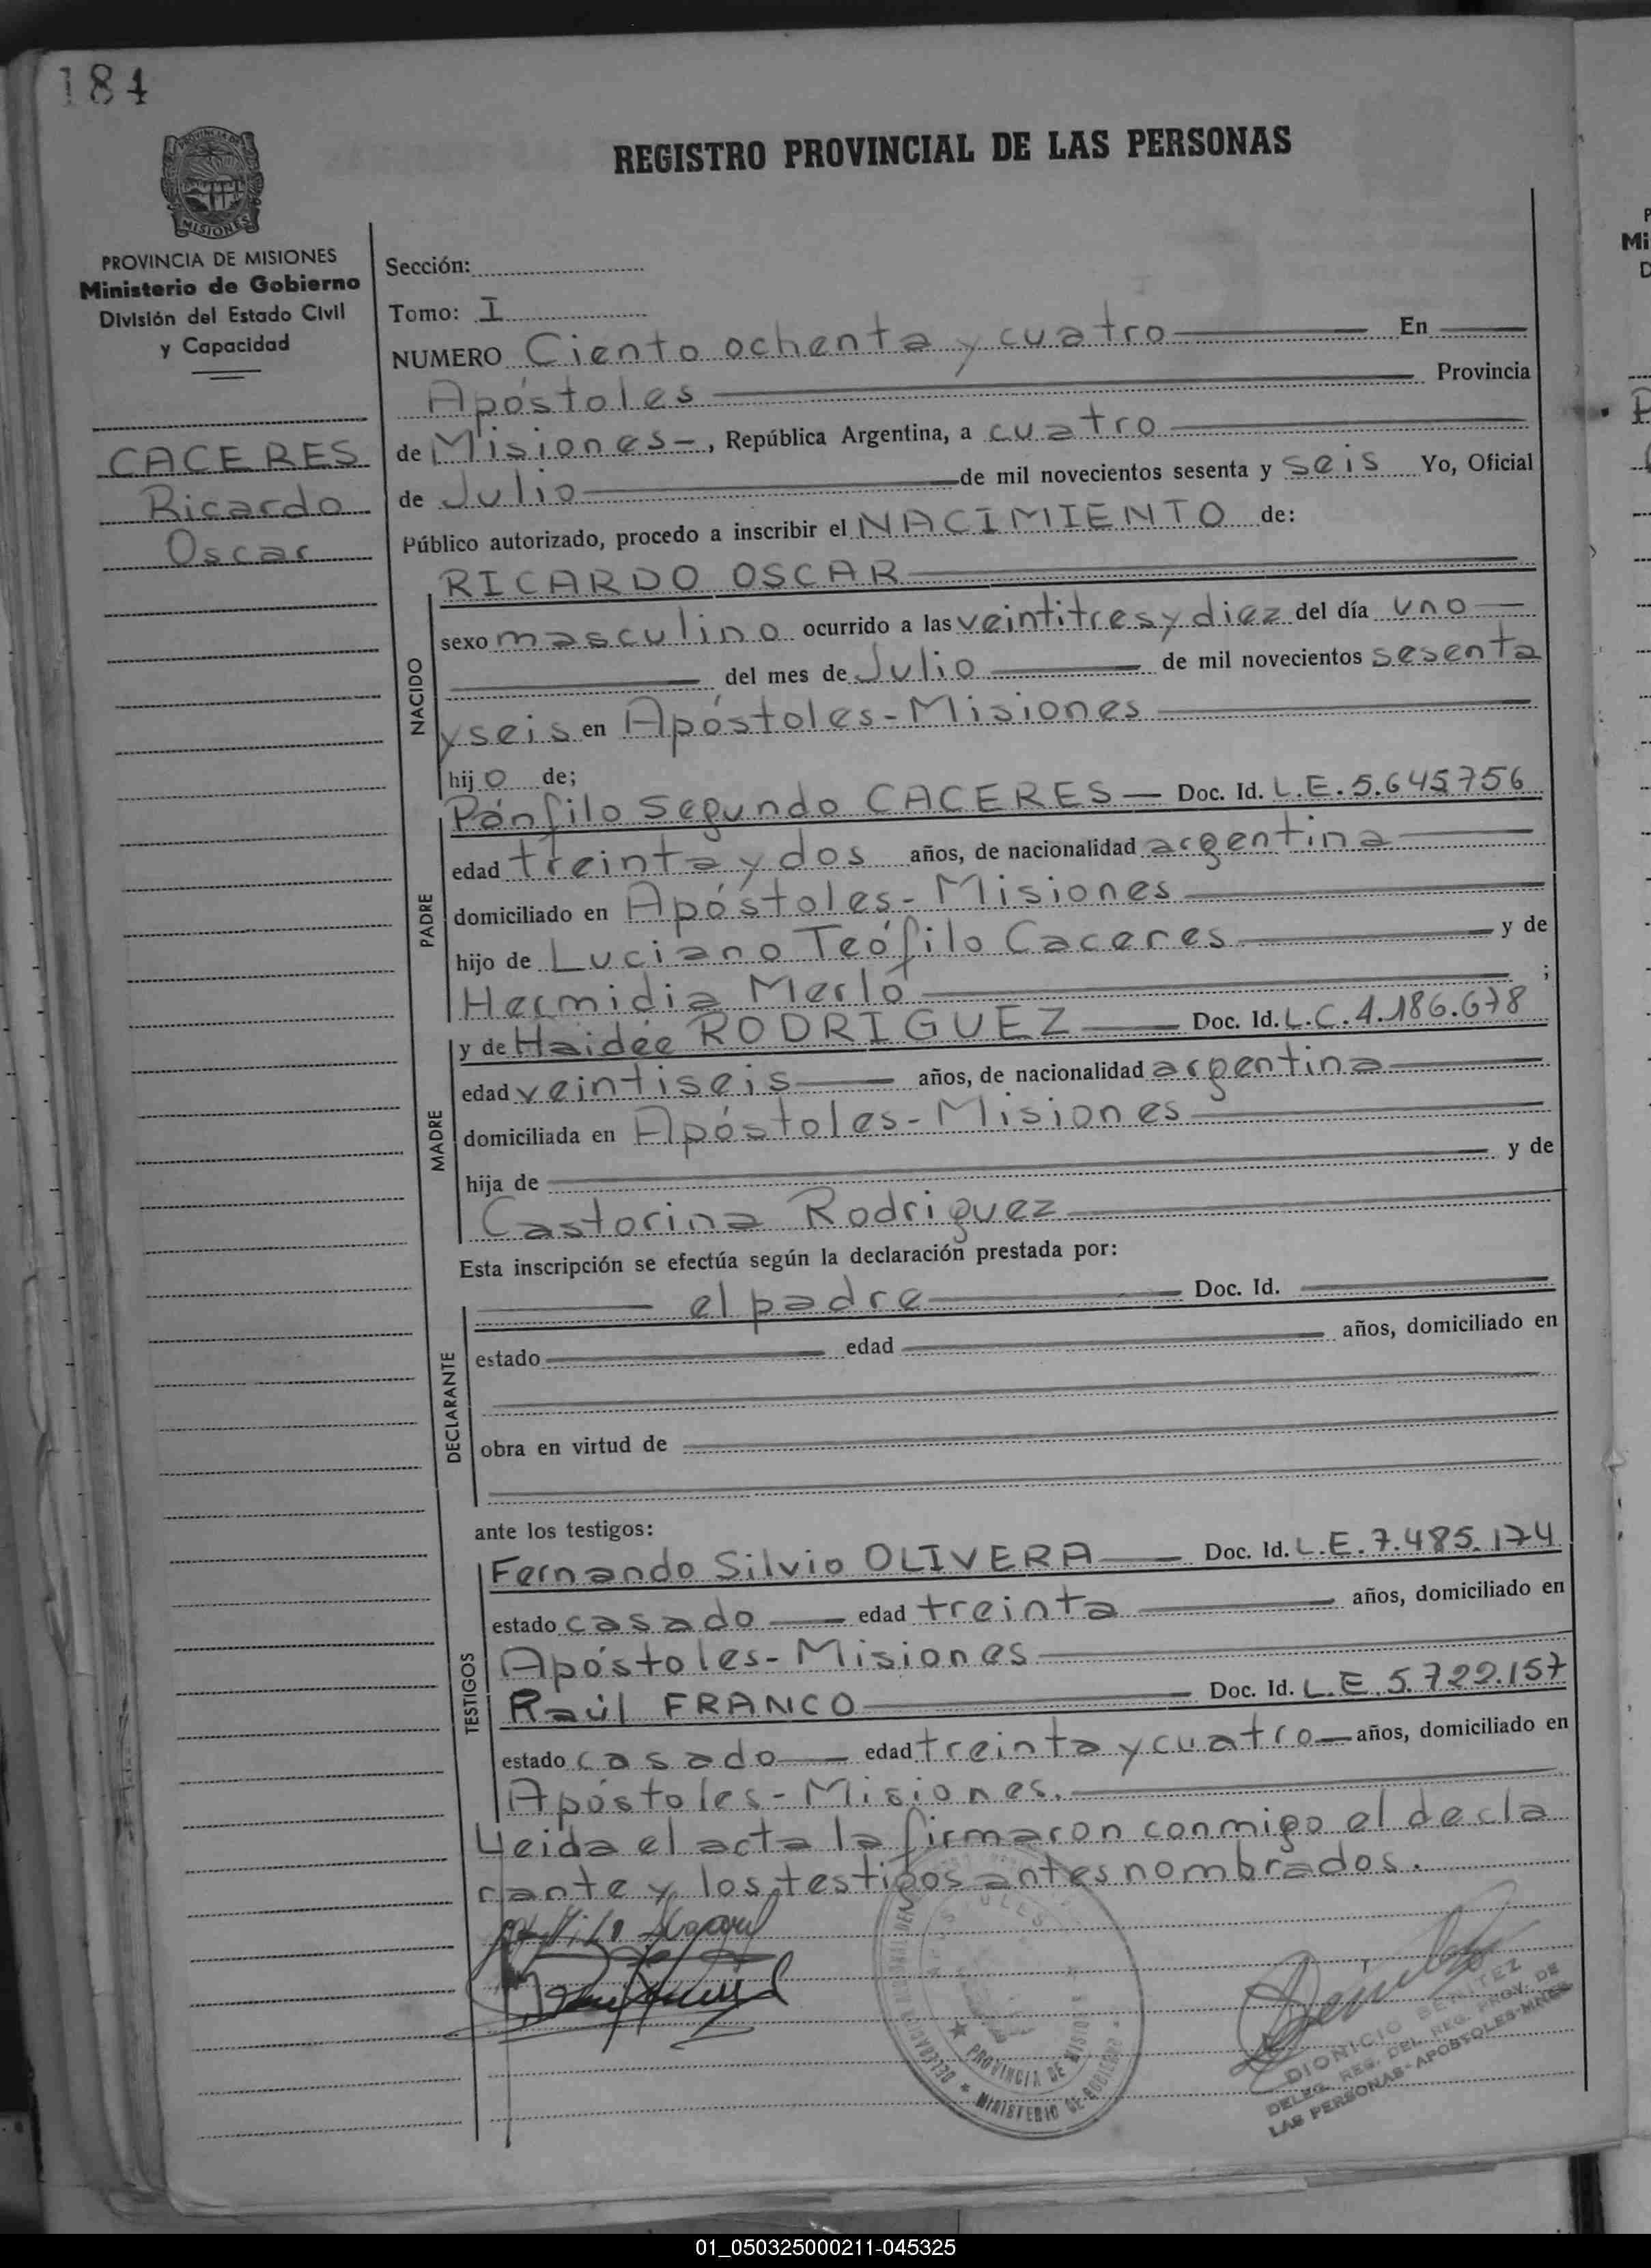 184
REGISTRO PROVINCIAL DE LAS PERSONAS
PROVINCIA DE MISIONES
MISIONES
PROVINCIA DE MISIONES
Ministerio de Gobierno
División del Estado Civil
y Capacidad
CACERES
Ricardo
Oscar
Sección:
Tomo: I
NUMERO Ciento ochenta y cuatro En
Apóstoles Provincia
de Misiones-, República Argentina, a cuatro
de Julio de mil novecientos sesenta y seis Yo, Oficial
Público autorizado, procedo a inscribir el NACIMIENTO de:
NACIDO
RICARDO OSCAR
sexo masculino ocurrido a las veintitres y diez del día uno
del mes de Julio de mil novecientos sesenta
y seis en Apóstoles-Misiones
hij o de;
PADRE
Pánfilo Segundo CACERES Doc. Id. L.E.5.645.756
edad treinta y dos años, de nacionalidad argentina
domiciliado en Apóstoles-Misiones
hijo de Luciano Teófilo Caceres y de
Hermidia Merlo ;
MADRE
y de Haidée RODRIGUEZ Doc. Id. L.C.1.186.678
edad veintiseis años, de nacionalidad argentina
domiciliada en Apóstoles-Misiones
hija de y de
Castorina Rodriguez
Esta inscripción se efectúa según la declaración prestada por:
DECLARANTE
el padre Doc. Id.
estado edad años, domiciliado en
obra en virtud de
ante los testigos:
TESTIGOS
Fernando Silvio OLIVERA Doc. Id. L.E.7.485.174
estado casado edad treinta años, domiciliado en
Apóstoles-Misiones
Raúl FRANCO Doc. Id. L.E.5.722.157
estado casado edad treinta y cuatro años, domiciliado en
Apóstoles-Misiones.
Leida el acta la firmaron conmigo el decla
rante y los testigos antes nombrados.
PROVINCIA DE MISIONES
MINISTERIO DE GOBIERNO
DIONICIO BENITEZ
DELEG. REG. DEL REG. PROV. DE
LAS PERSONAS-APOSTOLES-MNES
01_050325000211-045325